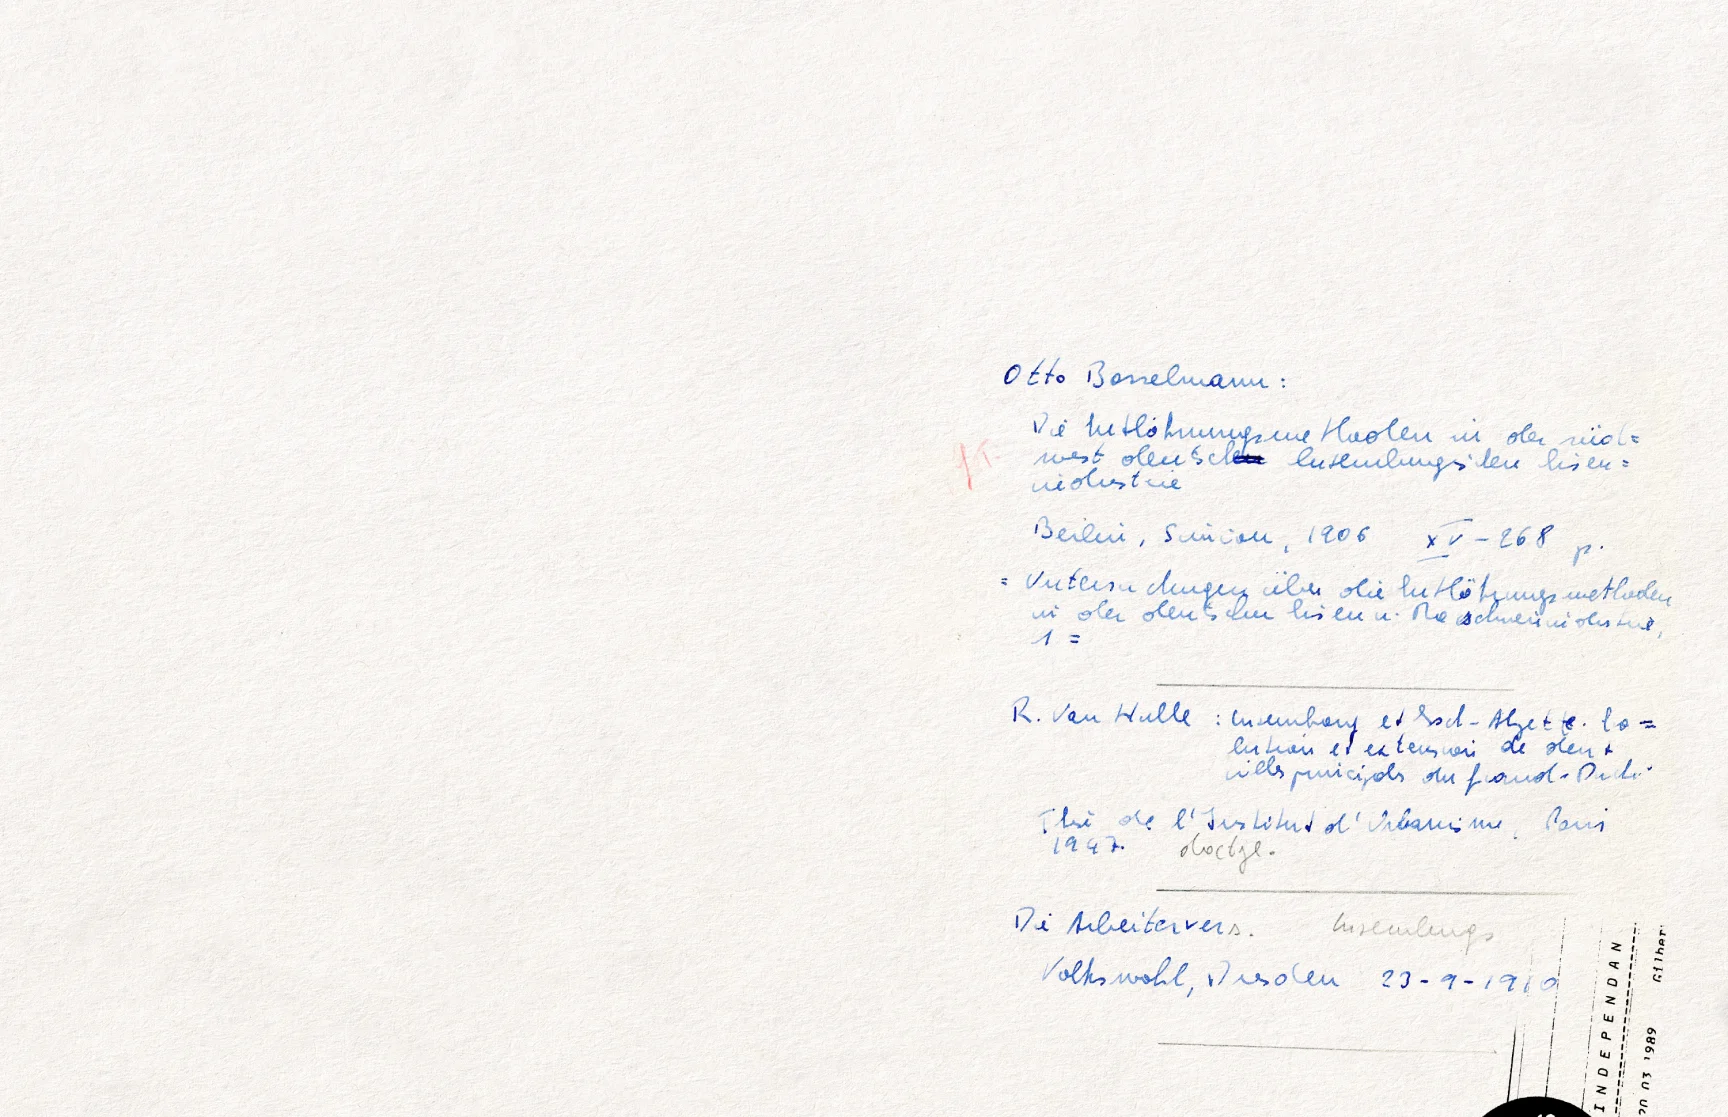 Otto Bosselmann :
Die Entlöhnungsmethoden in der süd=
west deutsch luxemburgischen Eisen=
industrie
Berlin, Simion, 1906 XV - 268 p.
= Untersuchungen über die Entlöhnungsmethoden
in der deutschen Eisen u. Maschinenindustrie,
1 =
R. Van Hulle : Luxembourg et Esch-Alzette. Evo=
lution et extension de deux
villes principales du Grand-Duché
Thèse de l'Institut d'Urbanisme, Paris
1947. dactyl.
Die Arbeitervers. Luxemburgs
Volkswohl, Dresden 23-9-1910
INDEPENDAN
20 03 1989 Gilber